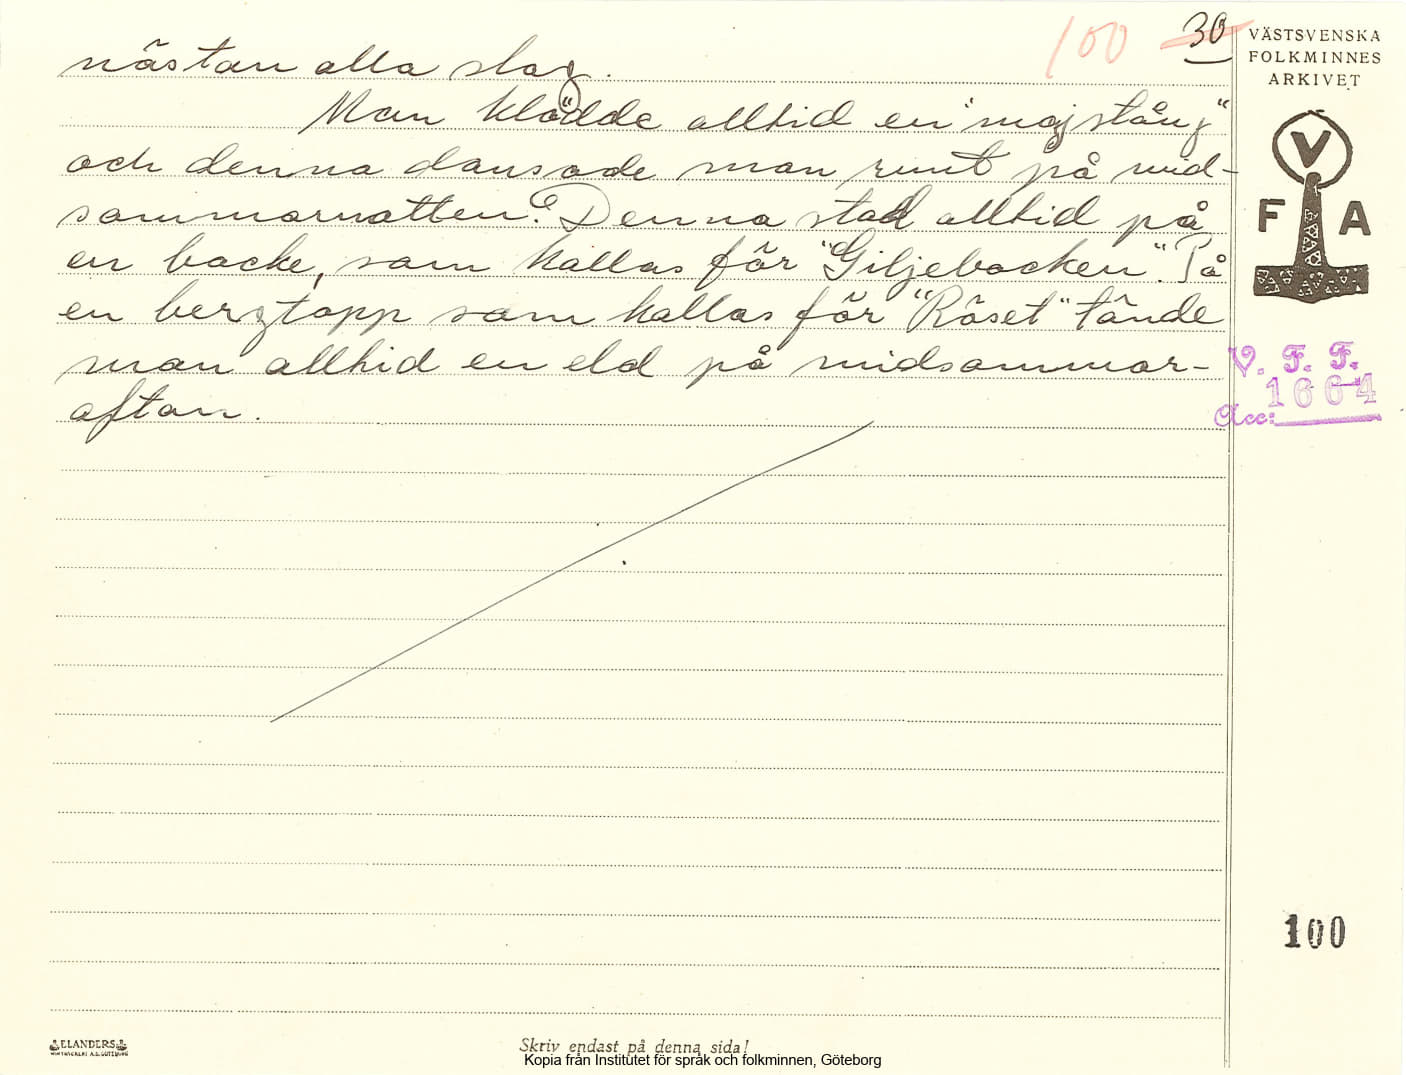 100 30
nästan alla slag.
Man klädde alltid en "majstång"
och denna dansade man runt på mid-
sommarnatten. Denna stod alltid på
en backe, som kallas för "Giljebacken". På
en bergtopp som kallas för "Röset" tände
man alltid en eld på midsommar-
aftan.
VÄSTSVENSKA
FOLKMINNES
ARKIVET
V
F A
V. F. F.
1664
Acc:
100
ELANDERS
Skriv endast på denna sida!
Kopia från Institutet för språk och folkminnen, Göteborg